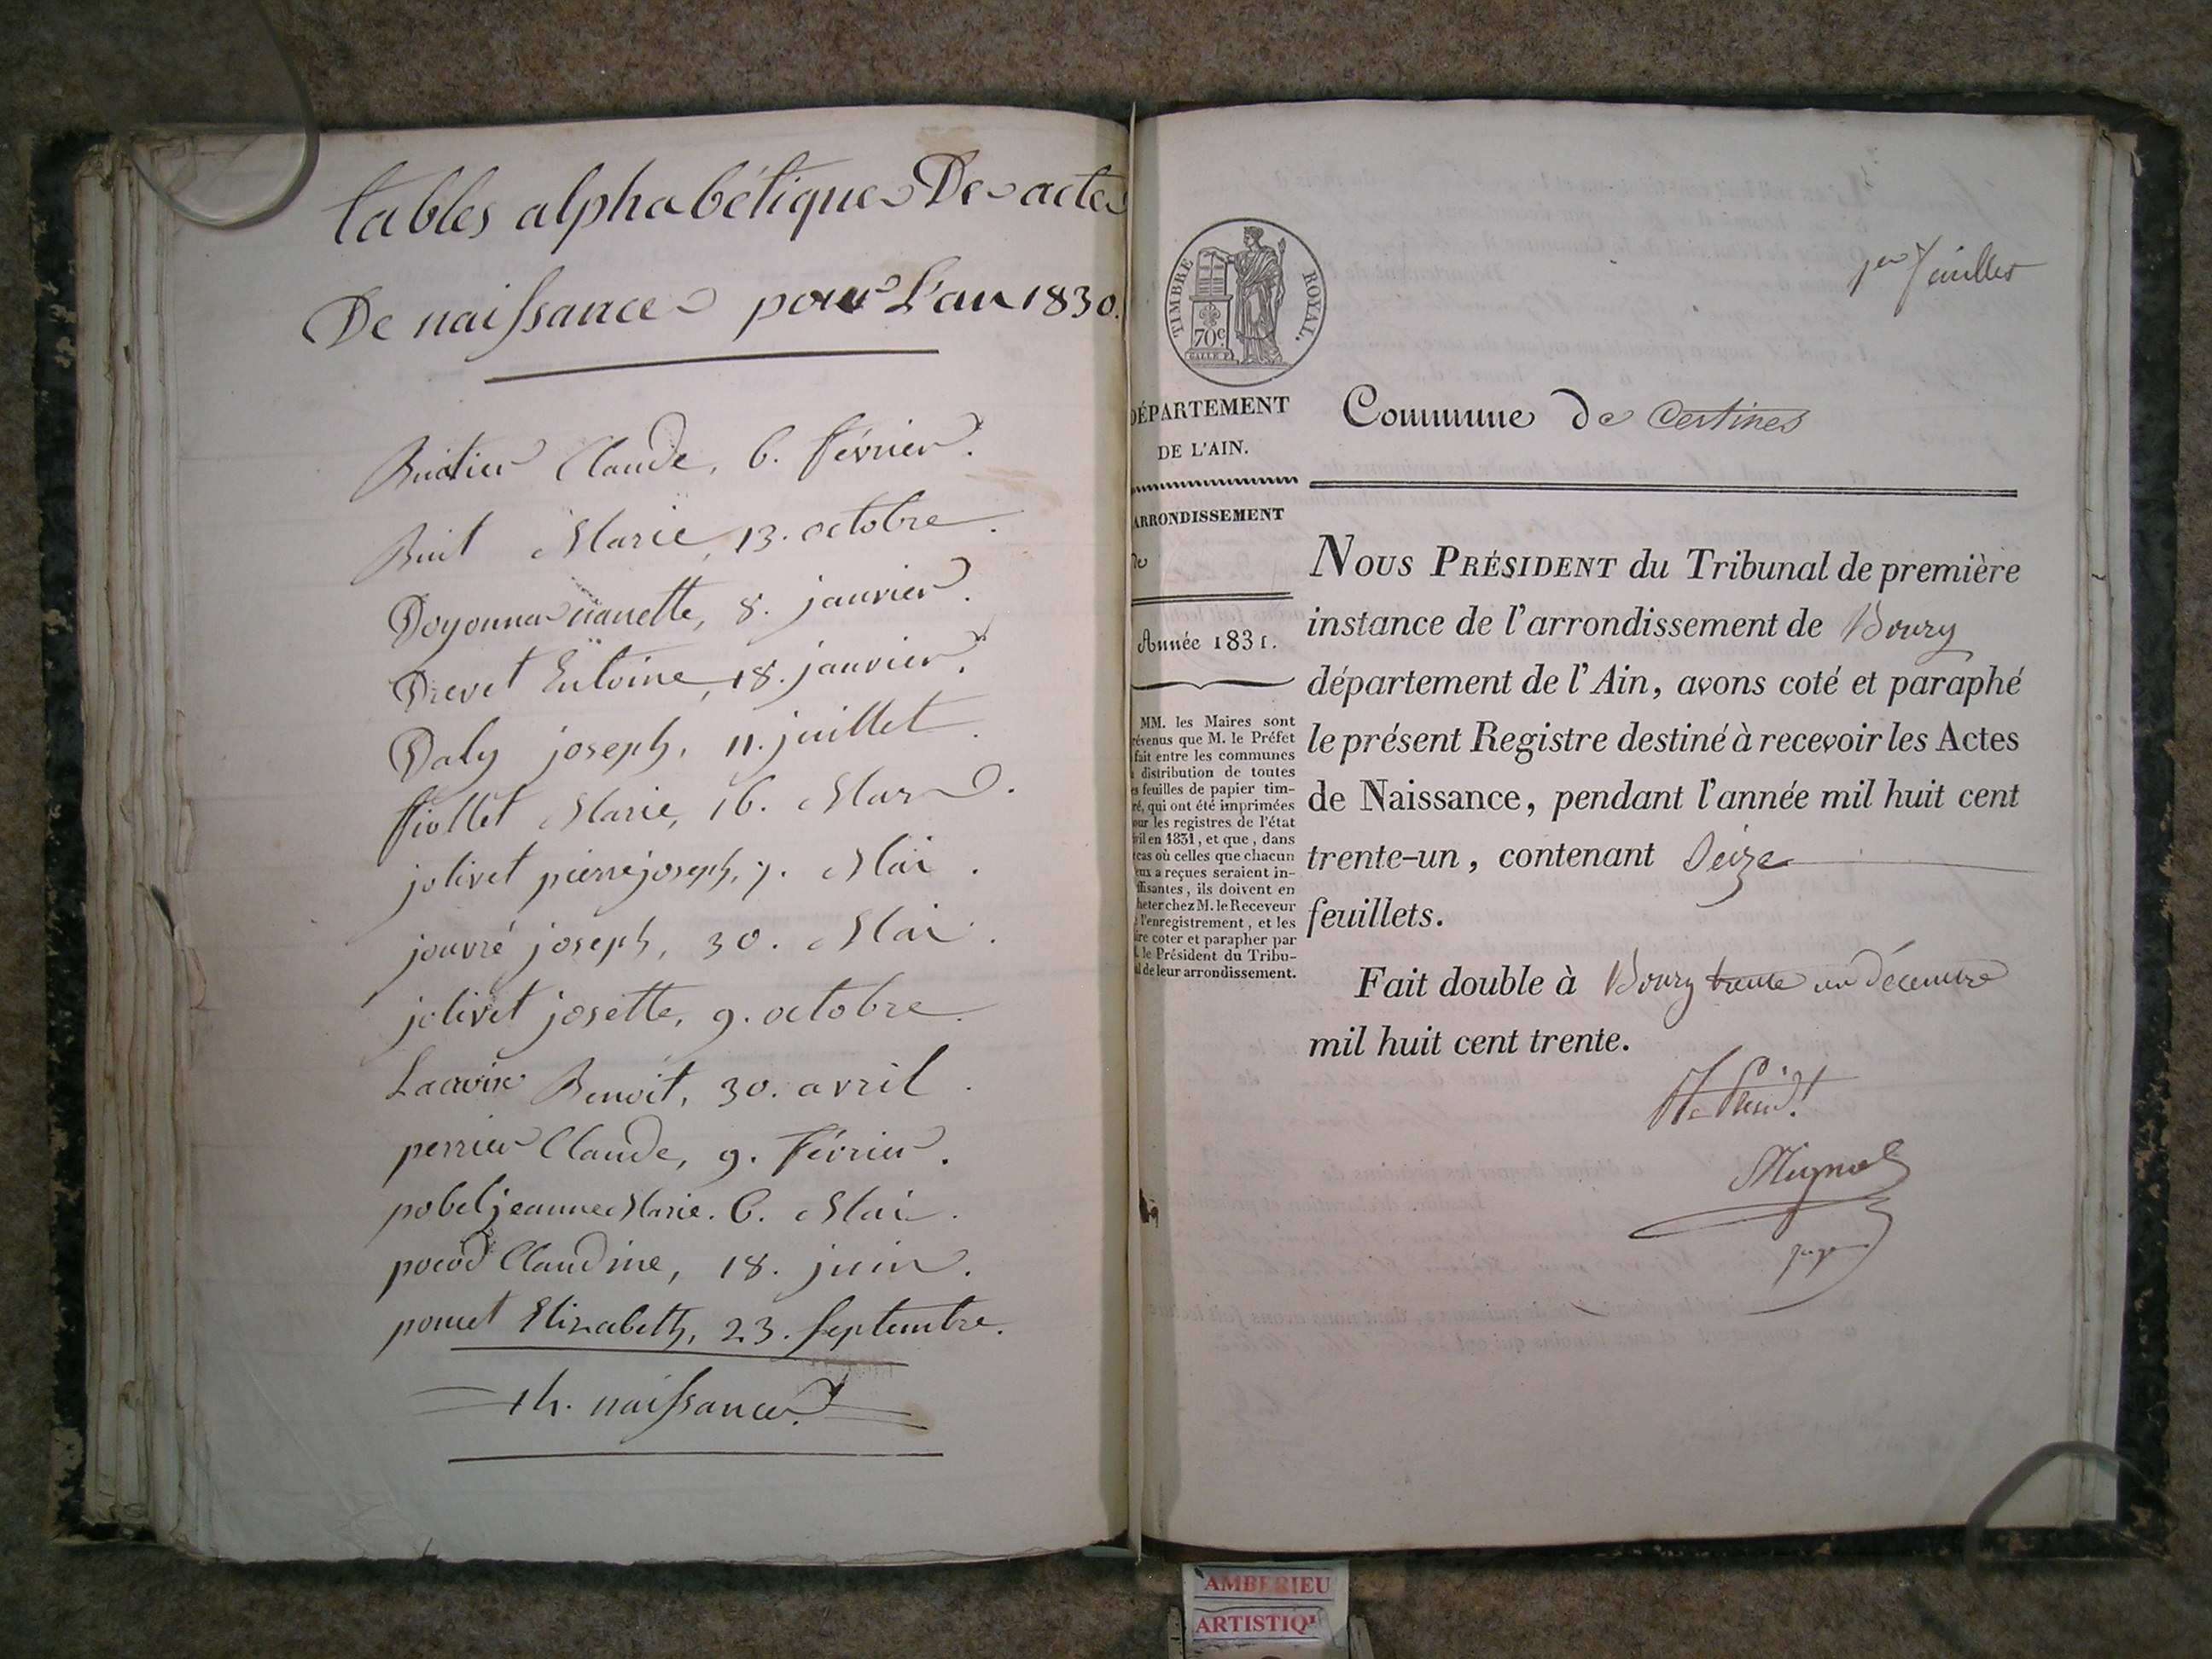 tables alphabétiques Des actes
De naissances pour L'an 1830.
Claude, 6. février.
Buit Marie, 13. octobre.
Doyonnas nanette, 8. janvier.
Drevet Entoine, 18. janvier.
Daly joseph, 11. juillet.
fiollet Marie, 16. Mars.
jolivet pierre joseph, 7. Mai.
jouvré joseph, 30. Mai.
jolivet josette, 9. octobre.
Lacroix Benoit, 30. avril.
perrier Claude, 9. février.
pobel jeanne Marie. 6. Mai.
pocod Claudine, 18. juin.
poncet Elizabeth, 23. septembre.
14. naissances.
1er feuillet
TIMBRE ROYAL.
70c.
DÉPARTEMENT
DE L'AIN.
ARRONDISSEMENT
de
Année 1831.
MM. les Maires sont
révenus que M. le Préfet
fait entre les communes
distribution de toutes
s feuilles de papier tim-
ré, qui ont été imprimées
our les registres de l'état
vil en 1831, et que, dans
cas où celles que chacun
eux a reçues seraient in-
ffisantes, ils doivent en
heter chez M. le Receveur
l'enregistrement, et les
ire coter et parapher par
. le Président du Tribu-
al de leur arrondissement.
Commune de Certines
NOUS PRÉSIDENT du Tribunal de première
instance de l'arrondissement de Bourg
département de l'Ain, avons coté et paraphé
le présent Registre destiné à recevoir les Actes
de Naissance, pendant l'année mil huit cent
trente-un, contenant Seize
feuillets.
Fait double à Bourg trente un décembre
mil huit cent trente.
juge
AMBERIEU
ARTISTIQU